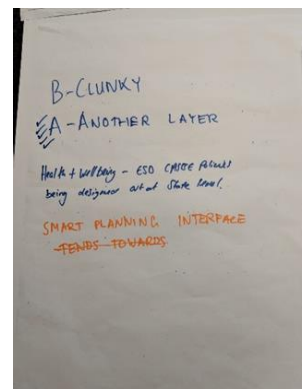 B-CLUNKY
A-ANOTHER LAYER
Health + Wellbeing - ESD
being designed out at State level.
SMART PLANNING INTERFACE
TENDS TOWARDS